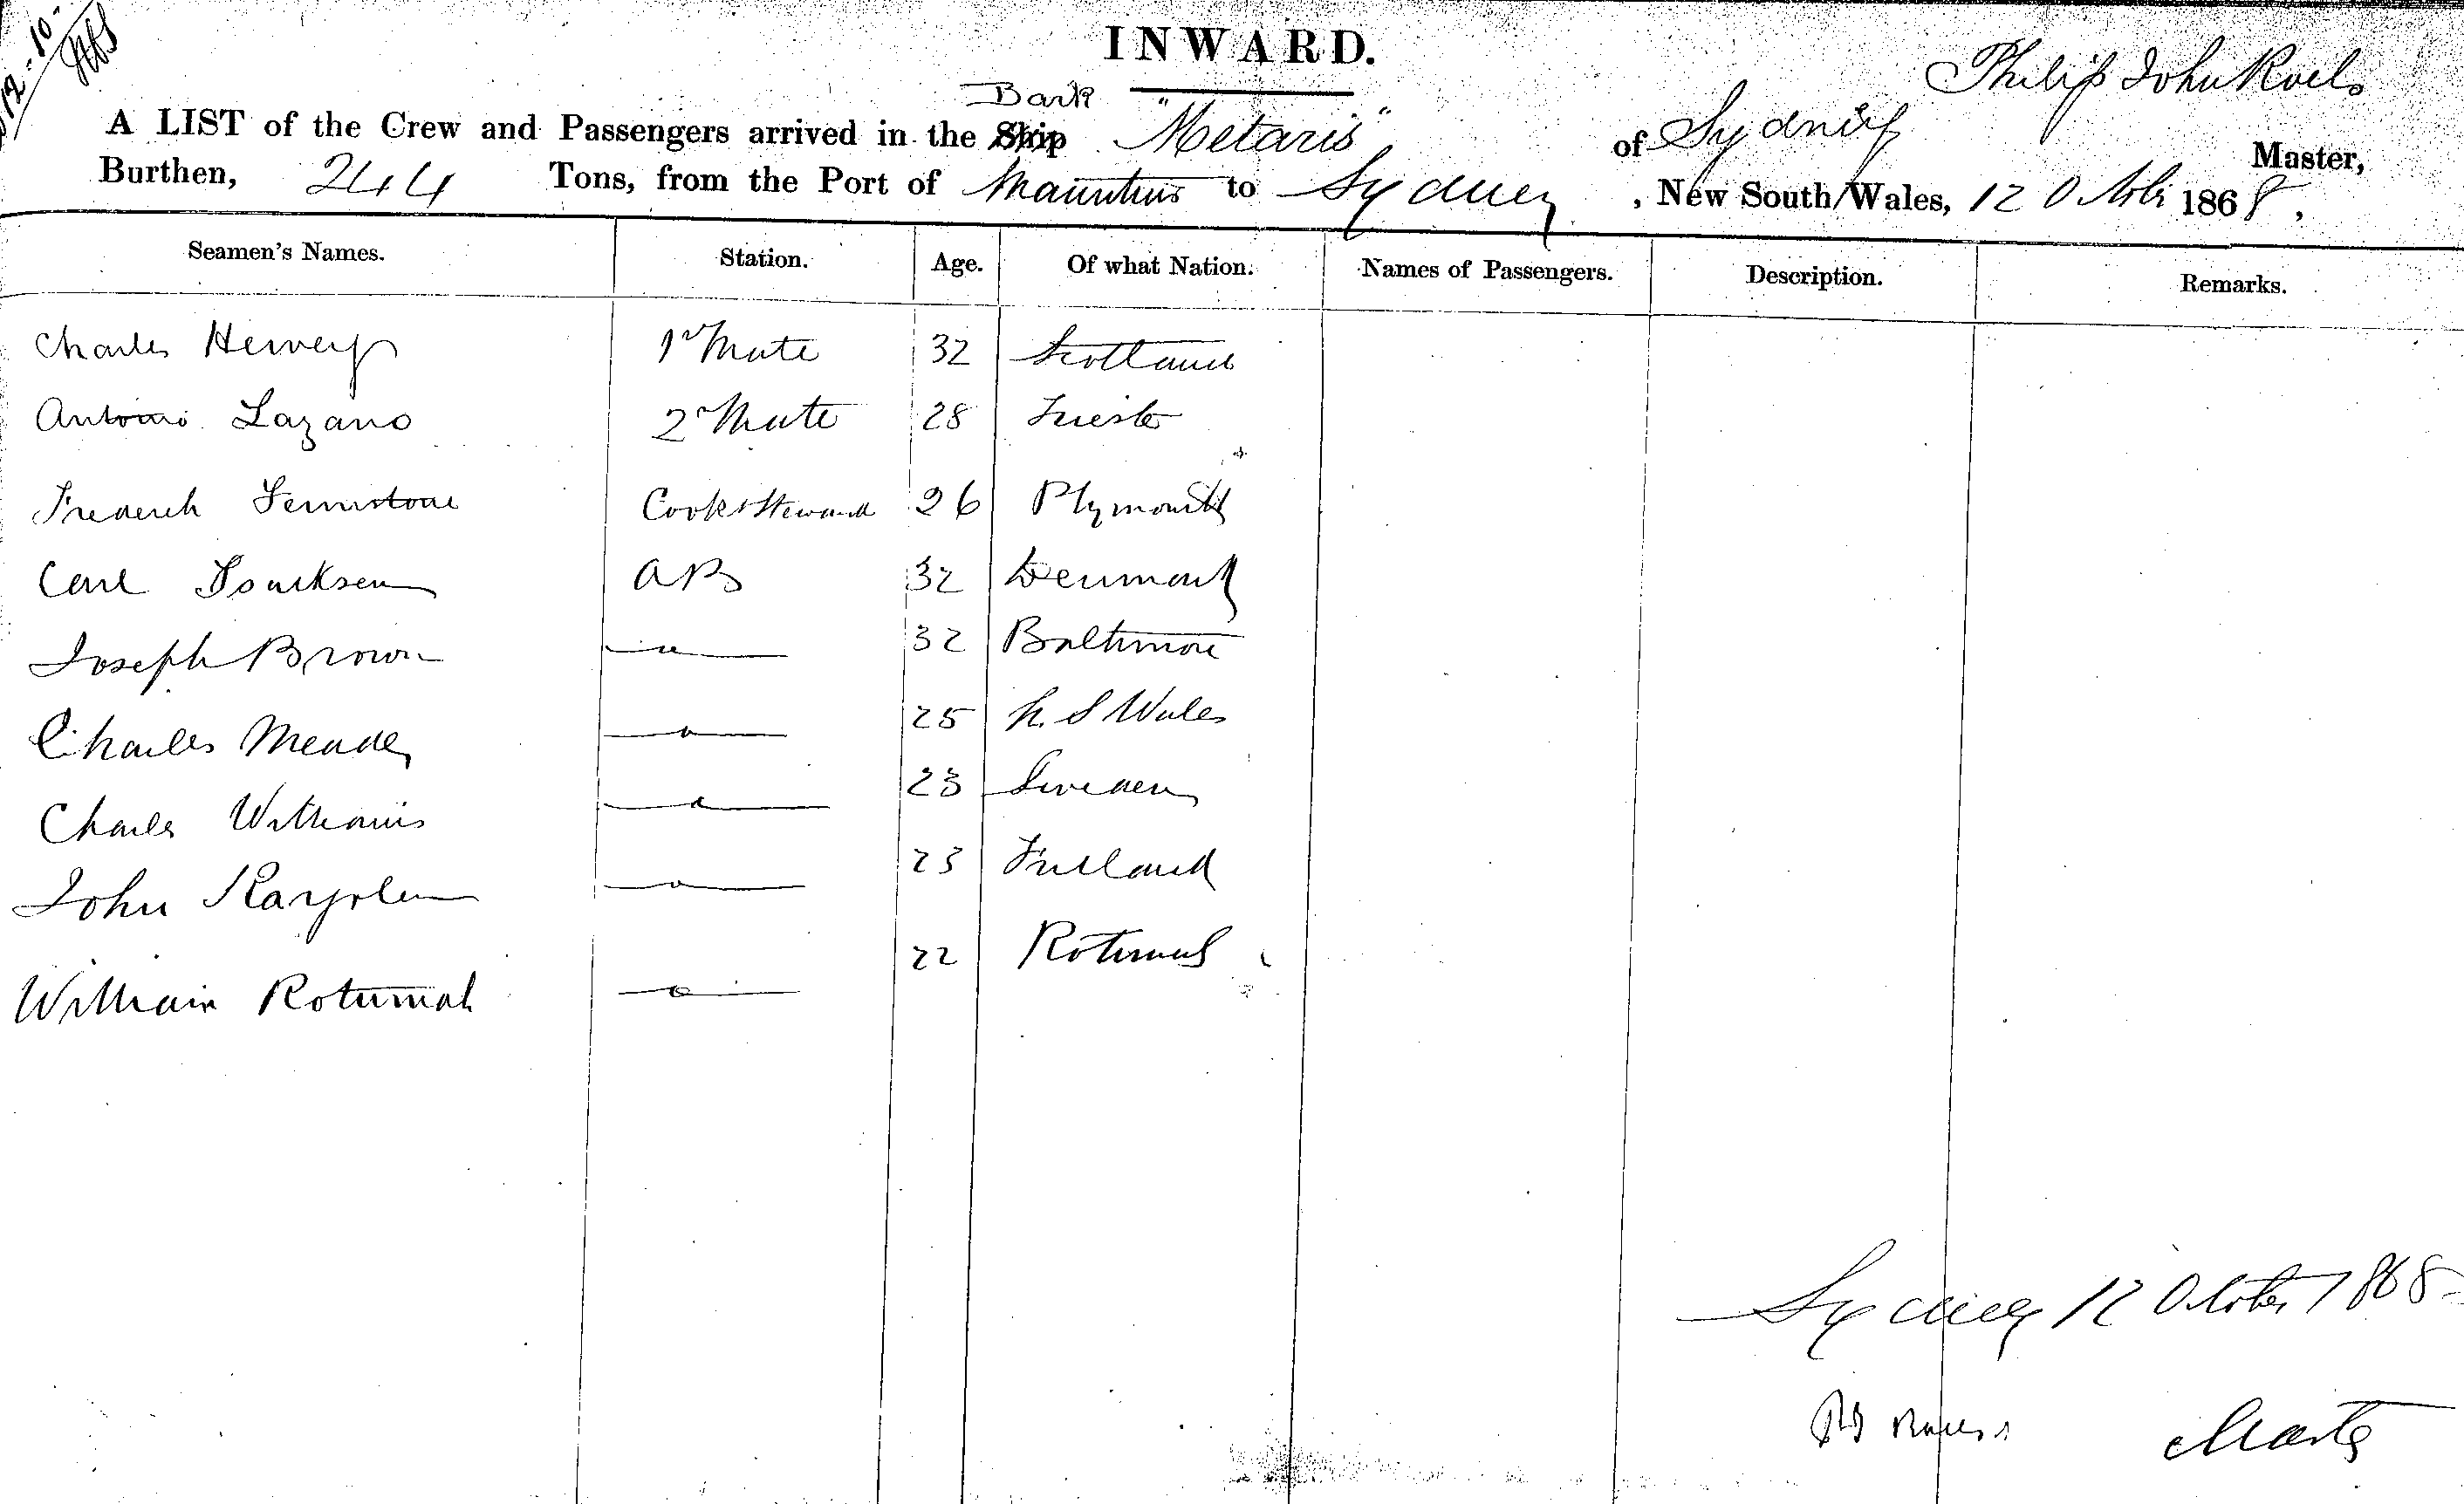 12-10-
INWARD.
Philip John
Bark
A LIST of the Crew and Passengers arrived in the Ship "Metaris" of Sydney Master,
Burthen, 244 Tons, from the Port of Mauritius to Sydney, New South Wales, 12 October 1868,
Seamen's Names. Station. Age. Of what Nation. Names of Passengers. Description. Remarks.
Charles Hervey 1r Mate 32 Scotland
Antonio Lazano 2r Mate 28 Trieste
Frederick Cook & Steward 26 Plymouth
Carl AB 32 Denmark
Joseph Brown " 32 Baltimore
Charles " 25 N. S Wales
Charles Williams " 23 Sweden
John " 23 Finland
William Rotumah " 22 Rotumah
Sydney 12 October 1868
Master